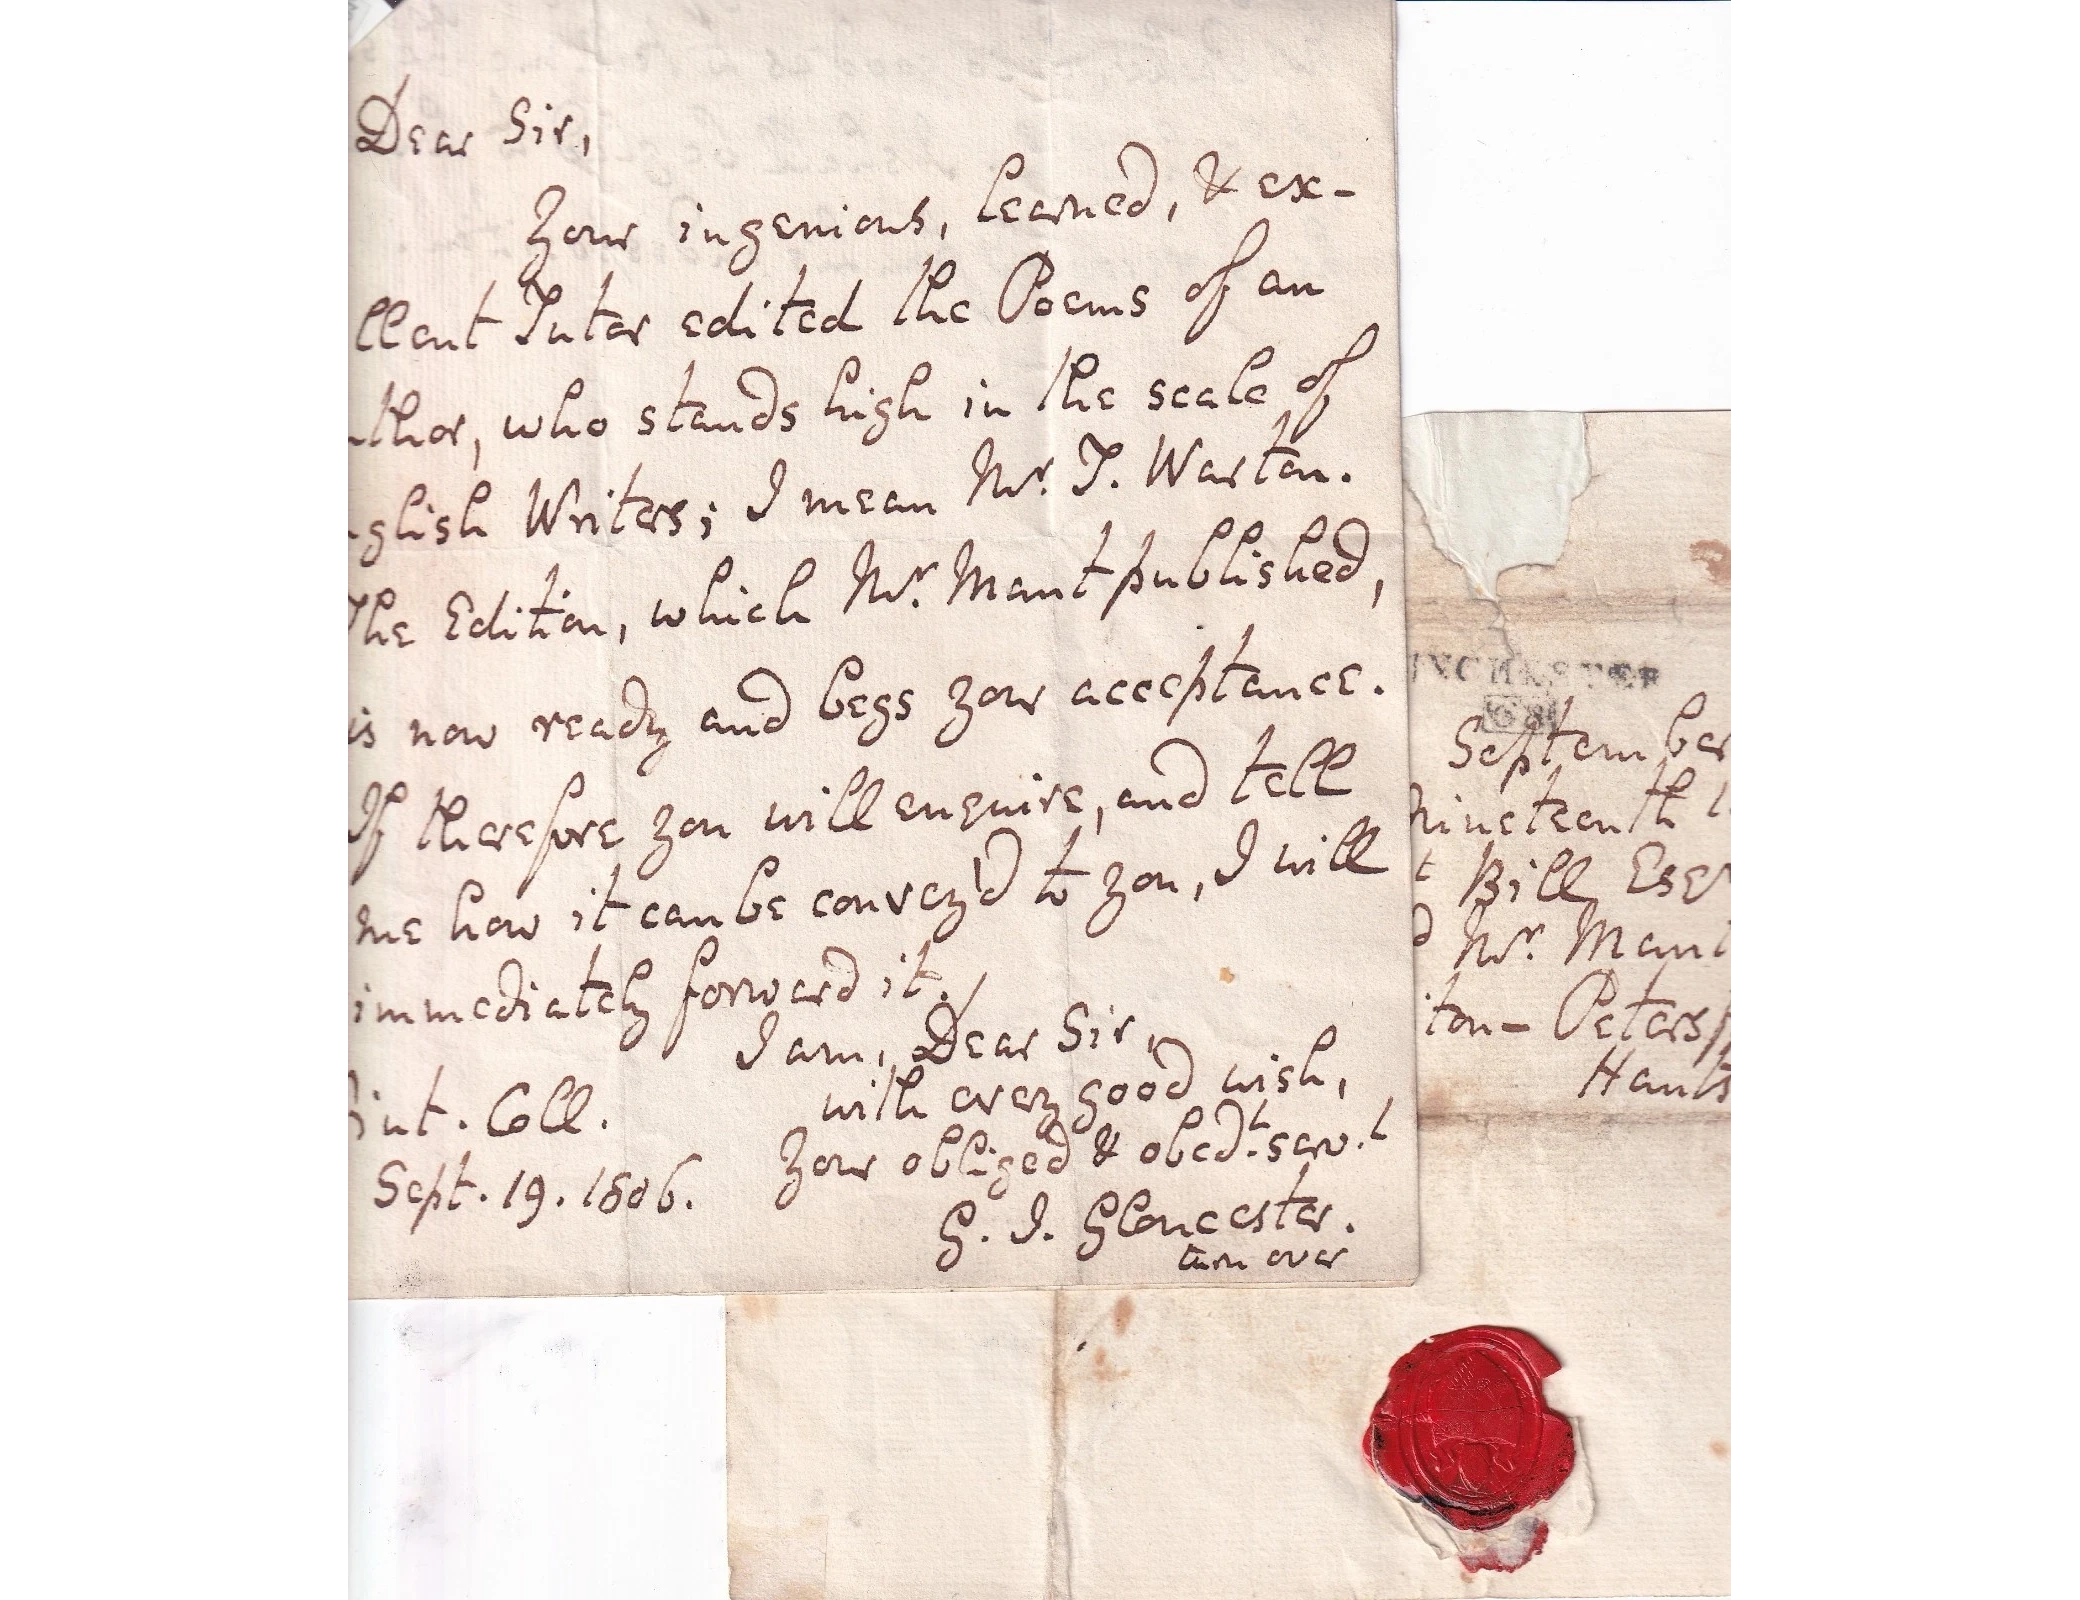 Dear Sir,
Your ingenious, learned, & ex-
llent Tutor edited the Poems of an
uthor, who stands high in the scale of
nglish Writers; I mean Mr. T. Warton.
The Edition, which Mr. Mant published,
is now ready and begs your acceptance.
If therefore you will enquire, and tell
me how it can be convey'd to you, I will
immediately forward it.
I am, Dear Sir,
with every good wish,
Your obliged & obedt. servt.
G. I. Gloucester.
turn over
int. Coll.
Sept. 19. 1806.
INCHESTER
68
September
nineteenth
t Bill Esq
d Mr. Mant
iton - Petersf
Hants